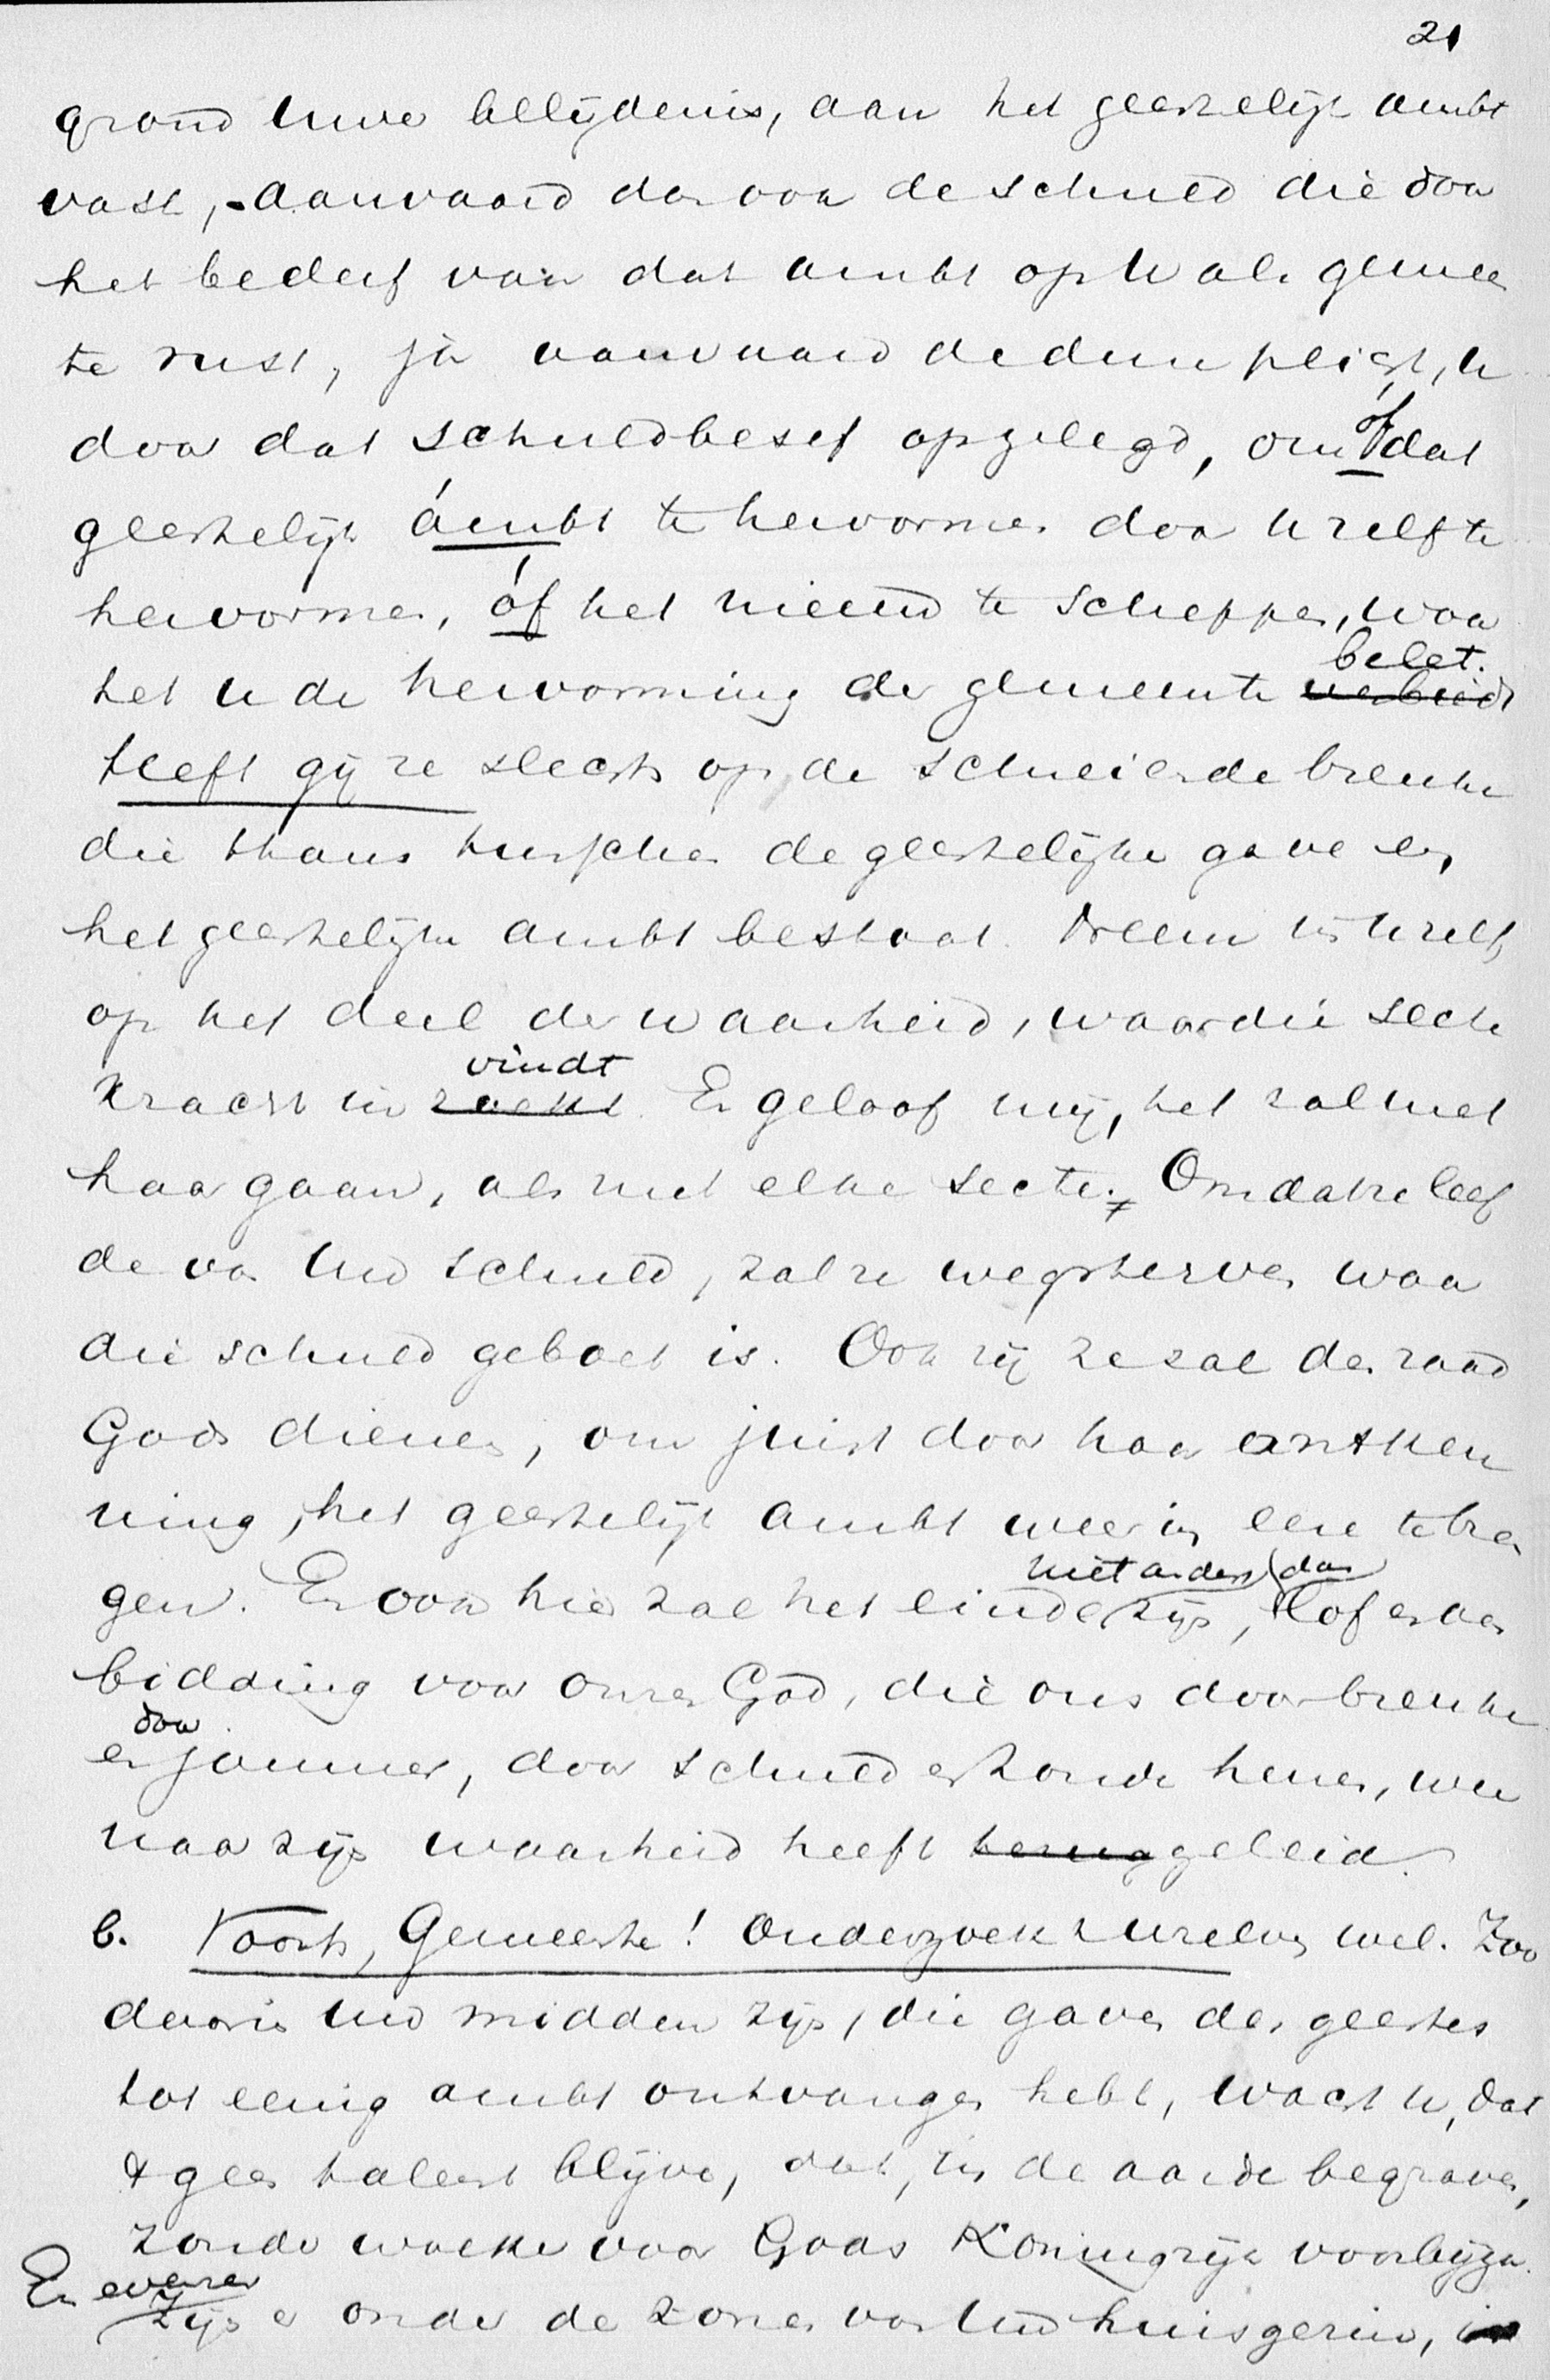 21
grond uwer belijdenis, aan het geestelijk ambt
vast, - aanvaard dan ook de schuld die door
het bederf van dat ambt op U als gemeen
te rust, ja aanvaard de duren plicht, U
door dat schuldbesef opgelegd, om óf dat
geestelijk ámbt te hervormen door U zelf te
hervormen, óf het nieuw te scheppen, waar
belet.
het U de hervorming der gemeente verbiedt
heeft gij ze slechts op de schreiende breuke
die thans tusschen de geestelijke gave en
het geestelijke ambt bestaat. Neem in U zelf
op het deel der waarheid, waar die secte
vindt
kracht in zoekt. En geloof mij, het zal met
haar gaan, als met elke secte. Omdat ze leef
de van Uw schuld, zal ze wegsterven waar
die schuld geboet is. Ook zij ze zal den raad
Gods dienen, om juist door haar ontken
ning, het geestelijk ambt weer in eere te bren
niet anders dan
gen. En ook hier zal het einde zijn, lof en aan
bidding voor onzen God, die ons door breuke
door
en jammer, door schuld en zonde henen, weer
naar zijn waarheid heeft teruggeleid.
b. Voorts, Gemeente! Onderzoekt Uzelven wel. Zoo
daar in Uw midden zijn, die gaven des geestes
tot eenig ambt ontvangen hebt, wacht U, dat
t geen talent blijve, dat, in de aarde begraven,
zonder woeker voor Gods Koningrijk voorbijga.
En evenzeer
Zijn er onder de zonen van Uw huisgezin, in